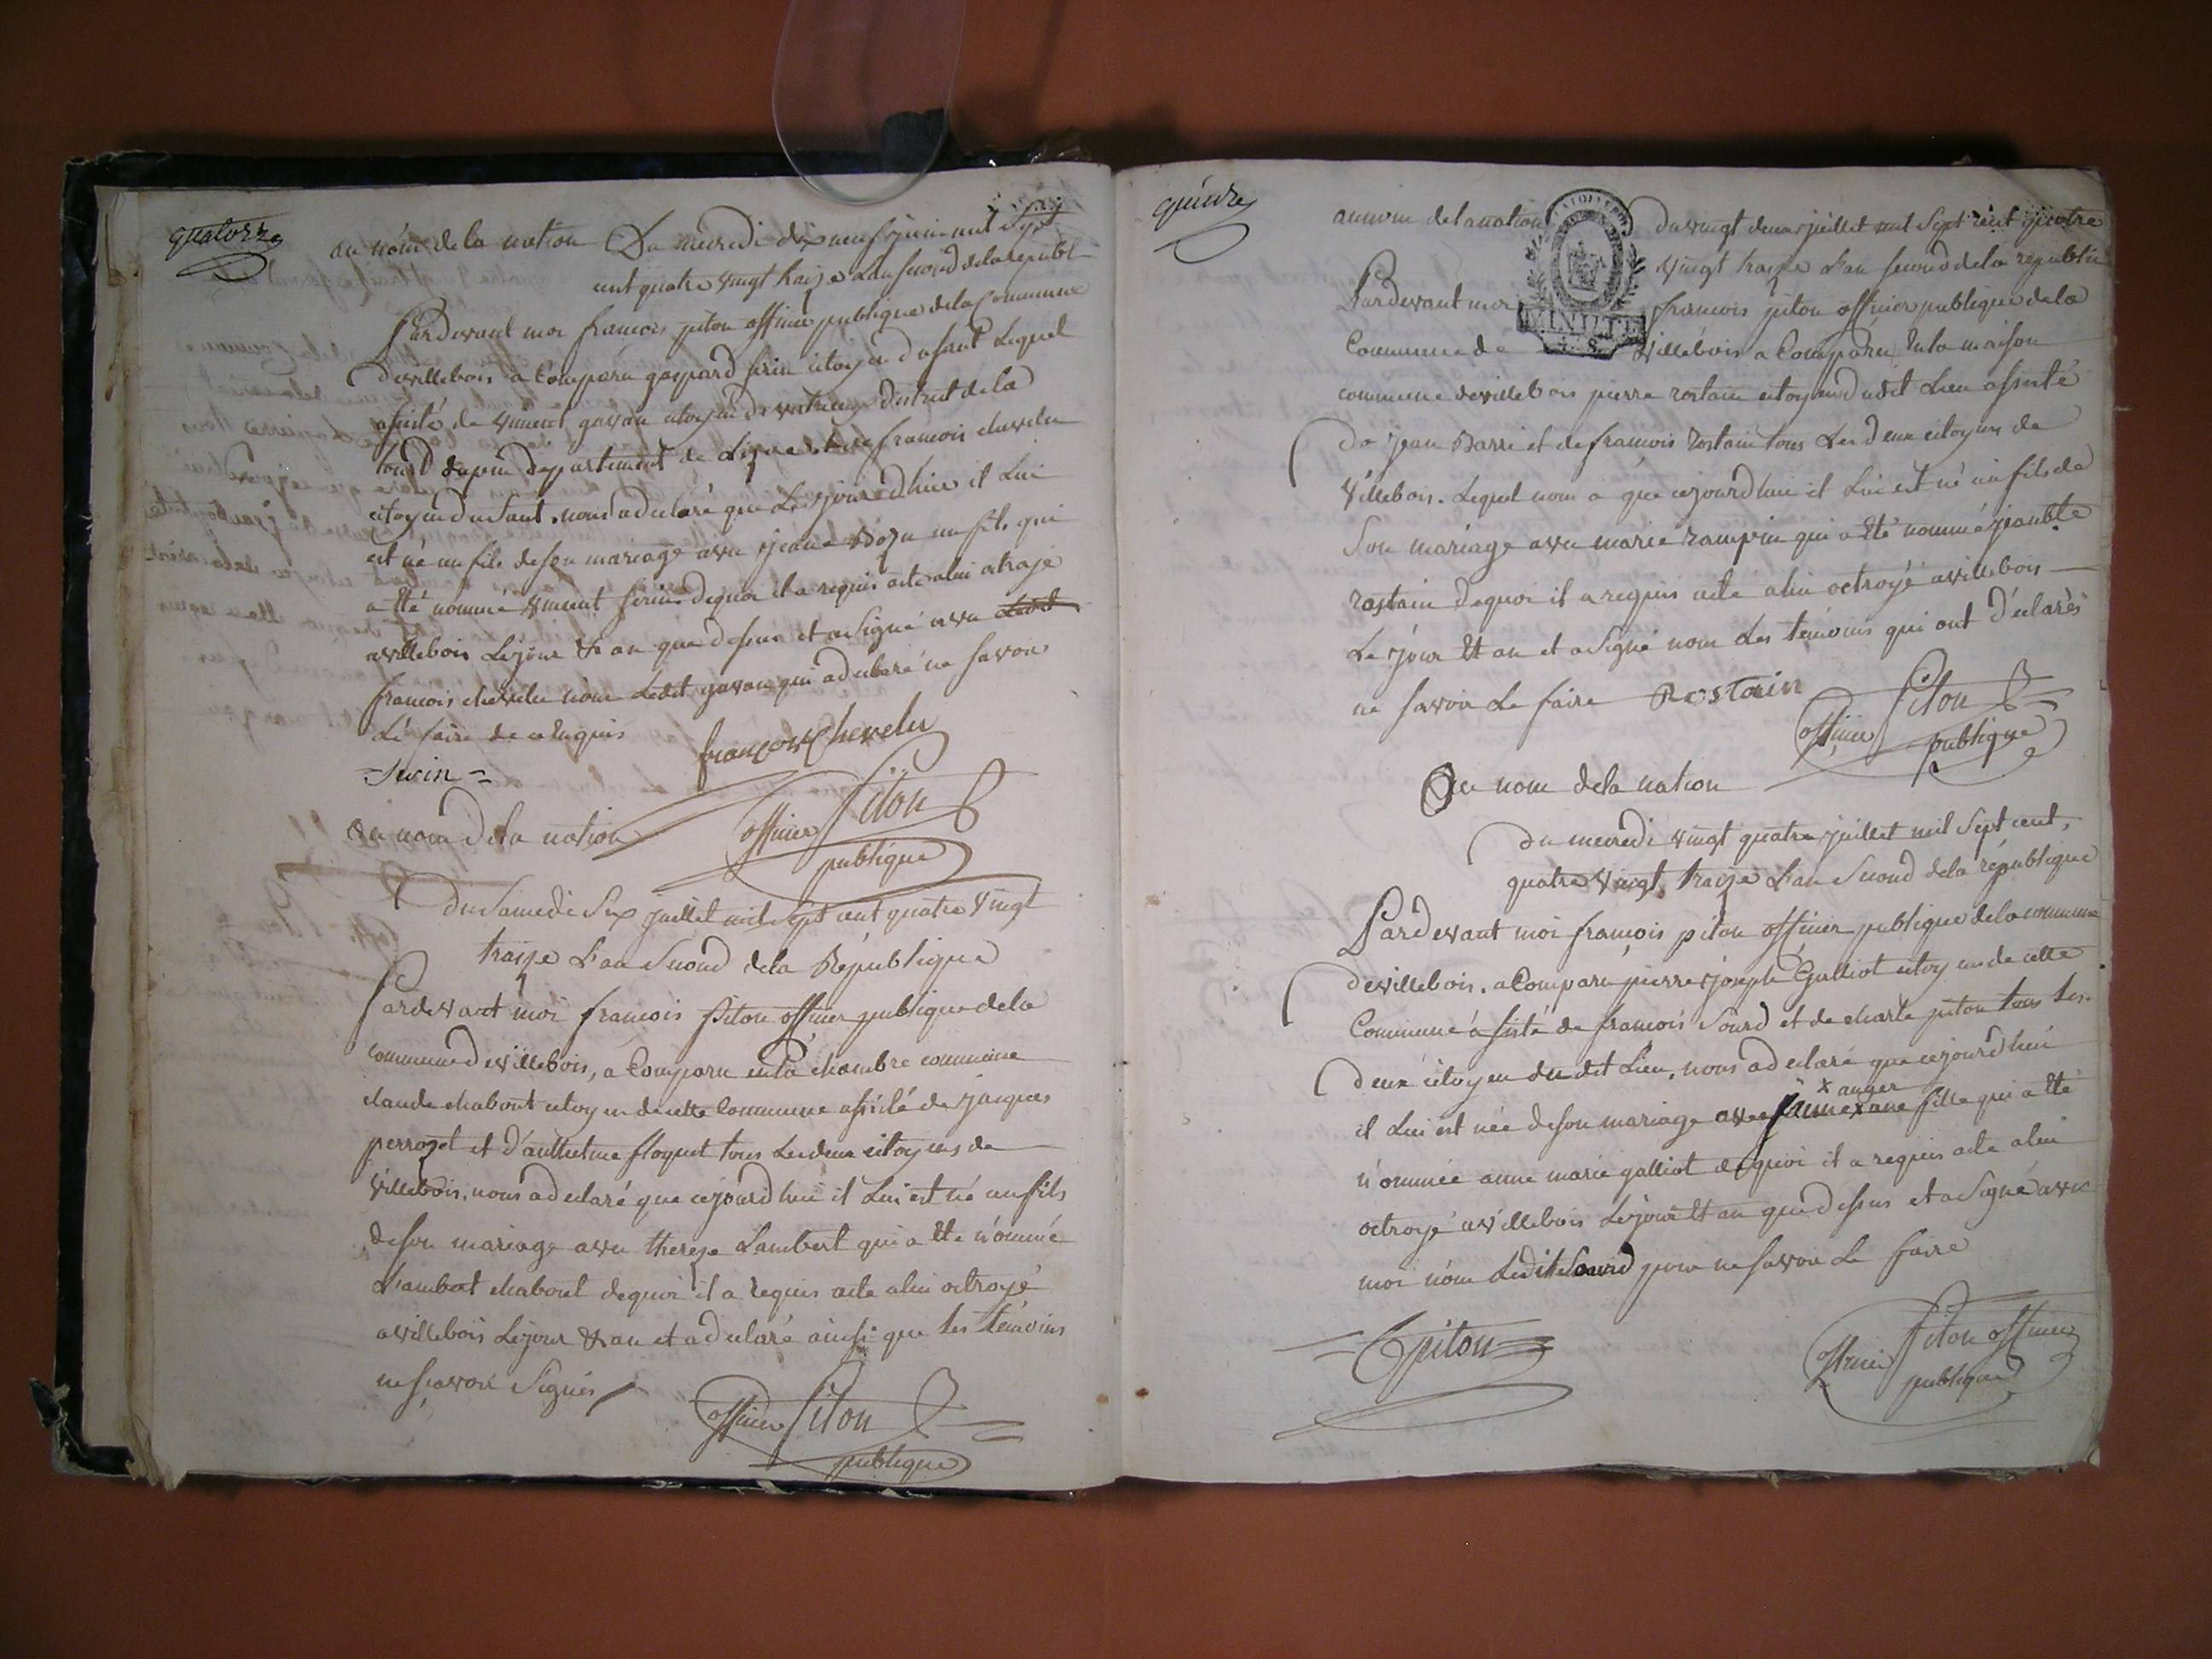 quatorze
au nom de la nation Du mercredi dix neuf juin mil sept
cent quatre vingt traize L'an second de la républ
Pardevant moi francois piton officier publique de la Commune
de villebois a Comparu gaspard serin citoyen du saut Lequel
assisté de vincent gavan citoyen de district de la
departement de et de francois chevelu
citoyen du saut. nous a declaré que Le jourdhui il Lui
est né un fils de son mariage avec jeane un fils qui
a été nommé vincent serin dequoi il a requis acte a lui octroje
a villebois Le jour & an que dessus et a signé avec Ledit
francois chevelu nom Ledit gavan qui a declaré ne savoir
Le faire de ce requis
francois Chevelu
- Serin =
Au nom de la nation
Piton
officier
publique
du Samedi Six juillet mil sept cent quatre vingt
traize L'an second de la République
Pardevant moi francois Piton officier publique de la
commune de villebois, a Comparu en la chambre commune
claude chabout citoyen de cette Commune assisté de jacques
perrozet et d'anthelme floquet tous Les deux citoyens de
villebois, nous a declaré que cejourdhui il Lui est né un fils
de son mariage avec thereze Lambert qui a été nommé
Lambert chabout dequoi il a requis acte a lui octroyé
a villebois Le jour & an et a declaré ainsi que Les témoins
ne sçavoir Signer
officier Piton
publique
quinze
au nom de la nation Du vingt deux juillet mil sept cent quatre
vingt traize L'an second de la républiq
Pardevant moi francois piton officier publique de la
Commune de villebois a Comparu En la maison
MINUTE
commune de villebois pierre rostain citoyen du dit Lieu assisté
de jean Barri et de francois rostain tous Les deux citoyens de
Villebois. Lequel nous a que cejourdhui il Lui est né un fils de
Son mariage avec marie rampin qui a été nommé jean bte
rostain dequoi il a requis acte a lui octroyé a villebois
Le jour Et an et a signé nom Les temoins qui ont déclarés
ne savoir Le faire Rostain
Piton
officier
publique
Au nom de la nation
du mercredi vingt quatre juillet mil sept cent,
quatre vingt, traize L'an Second de la république
Pardevant moi francois piton officier publique de la commune
de villebois. a Comparu pierre joseph Galliot citoyen de cette
Commune assisté de francois Sourd et de charle piton tous les
deux citoyen du dit Lieu, nous a declaré que cejourdhui
x auger
il Lui est née de son mariage avec x une fille qui a été
nommée anne marie galliot dequoi il a requis acte a lui
octroyé a villebois Le jour Et an que dessus et a signé avec
moi nom Ledit Sourd pour ne savoir Le faire
Cpiton
Piton officier
publique